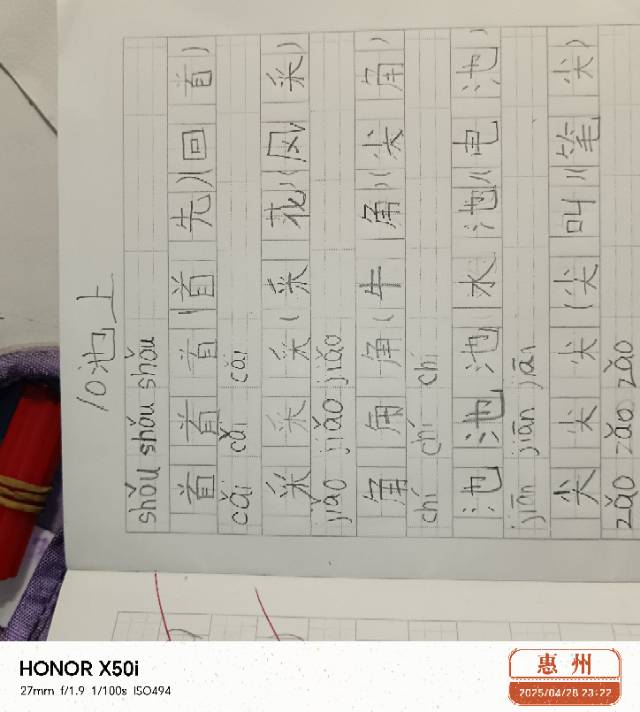 10池上
shǒu shǒu shǒu
首首首(首先)(回首)
cǎi cǎi cǎi
采采采(采花)(风采)
jiǎo jiǎo jiǎo
角角角(牛角)(尖角)
chí chí chí
池池池(水池)(电池)
jiān jiān jiān
尖尖尖(尖叫)(笔尖)
zǎo zǎo zǎo
HONOR X50i
27mm f/1.9 1/100s ISO494
惠州
2025/04/28 23:22